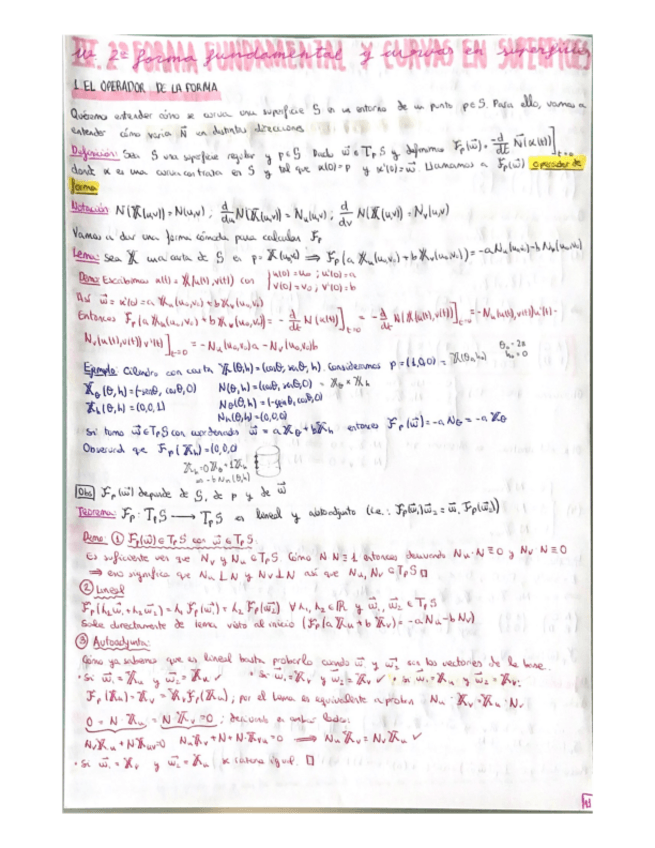 III. 2ª FORMA FUNDAMENTAL Y CURVAS EN SUPERFICIES
1. EL OPERADOR DE LA FORMA
Queremos entender cómo se curva una superficie S en un entorno de un punto p∈S. Para ello, vamos a
entender cómo varía N en distintas direcciones
Definición: Sea S una superficie regular y p∈S. Dado w⃗∈TpS y definimos Fp(w⃗) = -d/dt N(α(t))]t=0
donde α es una curva contenida en S y tal que α(0)=p y α'(0)=w⃗. Llamamos a Fp(w⃗) operador de
forma
Notación: N(X(u,v))=N(u,v); d/du N(X(u,v))=Nu(u,v); d/dv N(X(u,v))=Nv(u,v)
Vamos a dar una forma cómoda para calcular Fp
Lema: Sea X una carta de S en p=X(u₀,v₀) ⇒ Fp(aXu(u₀,v₀)+bXv(u₀,v₀))=-aNu(u₀,v₀)-bNv(u₀,v₀)
Demo: Escribimos α(t)=X(u(t),v(t)) con { u(0)=u₀; u'(0)=a
v(0)=v₀; v'(0)=b
Así w⃗=α'(0)=aXu(u₀,v₀)+bXv(u₀,v₀)
Entonces Fp(aXu(u₀,v₀)+bXv(u₀,v₀))= -d/dt N(α(t))]t=0 = -d/dt N(X(u(t),v(t))]t=0 =-Nu(u(t),v(t))u'(t)-
Nv(u(t),v(t))v'(t)]t=0 = -Nu(u₀,v₀)a-Nv(u₀,v₀)b
Ejemplo: Cilindro con carta X(θ,h)=(cosθ,senθ,h). Consideramos p=(1,0,0)=X(θ₀,h₀) θ₀=2π
h₀=0
Xθ(θ,h)=(-senθ,cosθ,0) N(θ,h)=(cosθ,senθ,0) = Xθ×Xh
Xh(θ,h)=(0,0,1) Nθ(θ,h)=(-senθ,cosθ,0)
Nh(θ,h)=(0,0,0)
Si tomo w⃗∈TpS con coordenadas w⃗=aXθ+bXh entonces Fp(w⃗)=-aNθ=-aXθ
Observad que Fp(Xh)=(0,0,0)
Xh=0Xθ+1Xh
Obs Fp(w⃗) depende de S, de p y de w⃗
Teorema: Fp: TpS → TpS es lineal y autoadjunto (i.e.: Fp(w⃗₁)w⃗₂=w⃗₁Fp(w⃗₂))
Demo: ① Fp(w⃗)∈TpS con w⃗∈TpS:
Es suficiente ver que Nv y Nu∈TpS. Como N·N≡1 entonces derivando Nu·N≡0 y Nv·N≡0
⇒ eso significa que Nu⊥N y Nv⊥N así que Nu,Nv∈TpS □
② Lineal
Fp(λ₁w⃗₁+λ₂w⃗₂)=λ₁Fp(w⃗₁)+λ₂Fp(w⃗₂) ∀λ₁,λ₂∈ℝ y w⃗₁,w⃗₂∈TpS
Sale directamente de lema visto al inicio (Fp(aXu+bXv)=-aNu-bNv)
③ Autoadjunta:
Como ya sabemos que es lineal basta probarlo cuando w⃗₁ y w⃗₂ son los vectores de la base.
• Si w⃗₁=Xu y w⃗₂=Xu ✓ • Si w⃗₁=Xv y w⃗₂=Xv ✓ • Si w⃗₁=Xu y w⃗₂=Xv:
Fp(Xu)·Xv=XuFp(Xv); por el Lema es equivalente a probar Nu·Xv=Xu·Nv
0=N·Xu=N·Xv=0; derivando en ambos lados:
NvXu+NXuv=0 NuXv+N·Xvu=0 ⇒ NuXv=NvXu ✓
• Si w⃗₁=Xv y w⃗₂=Xu se razona igual. □